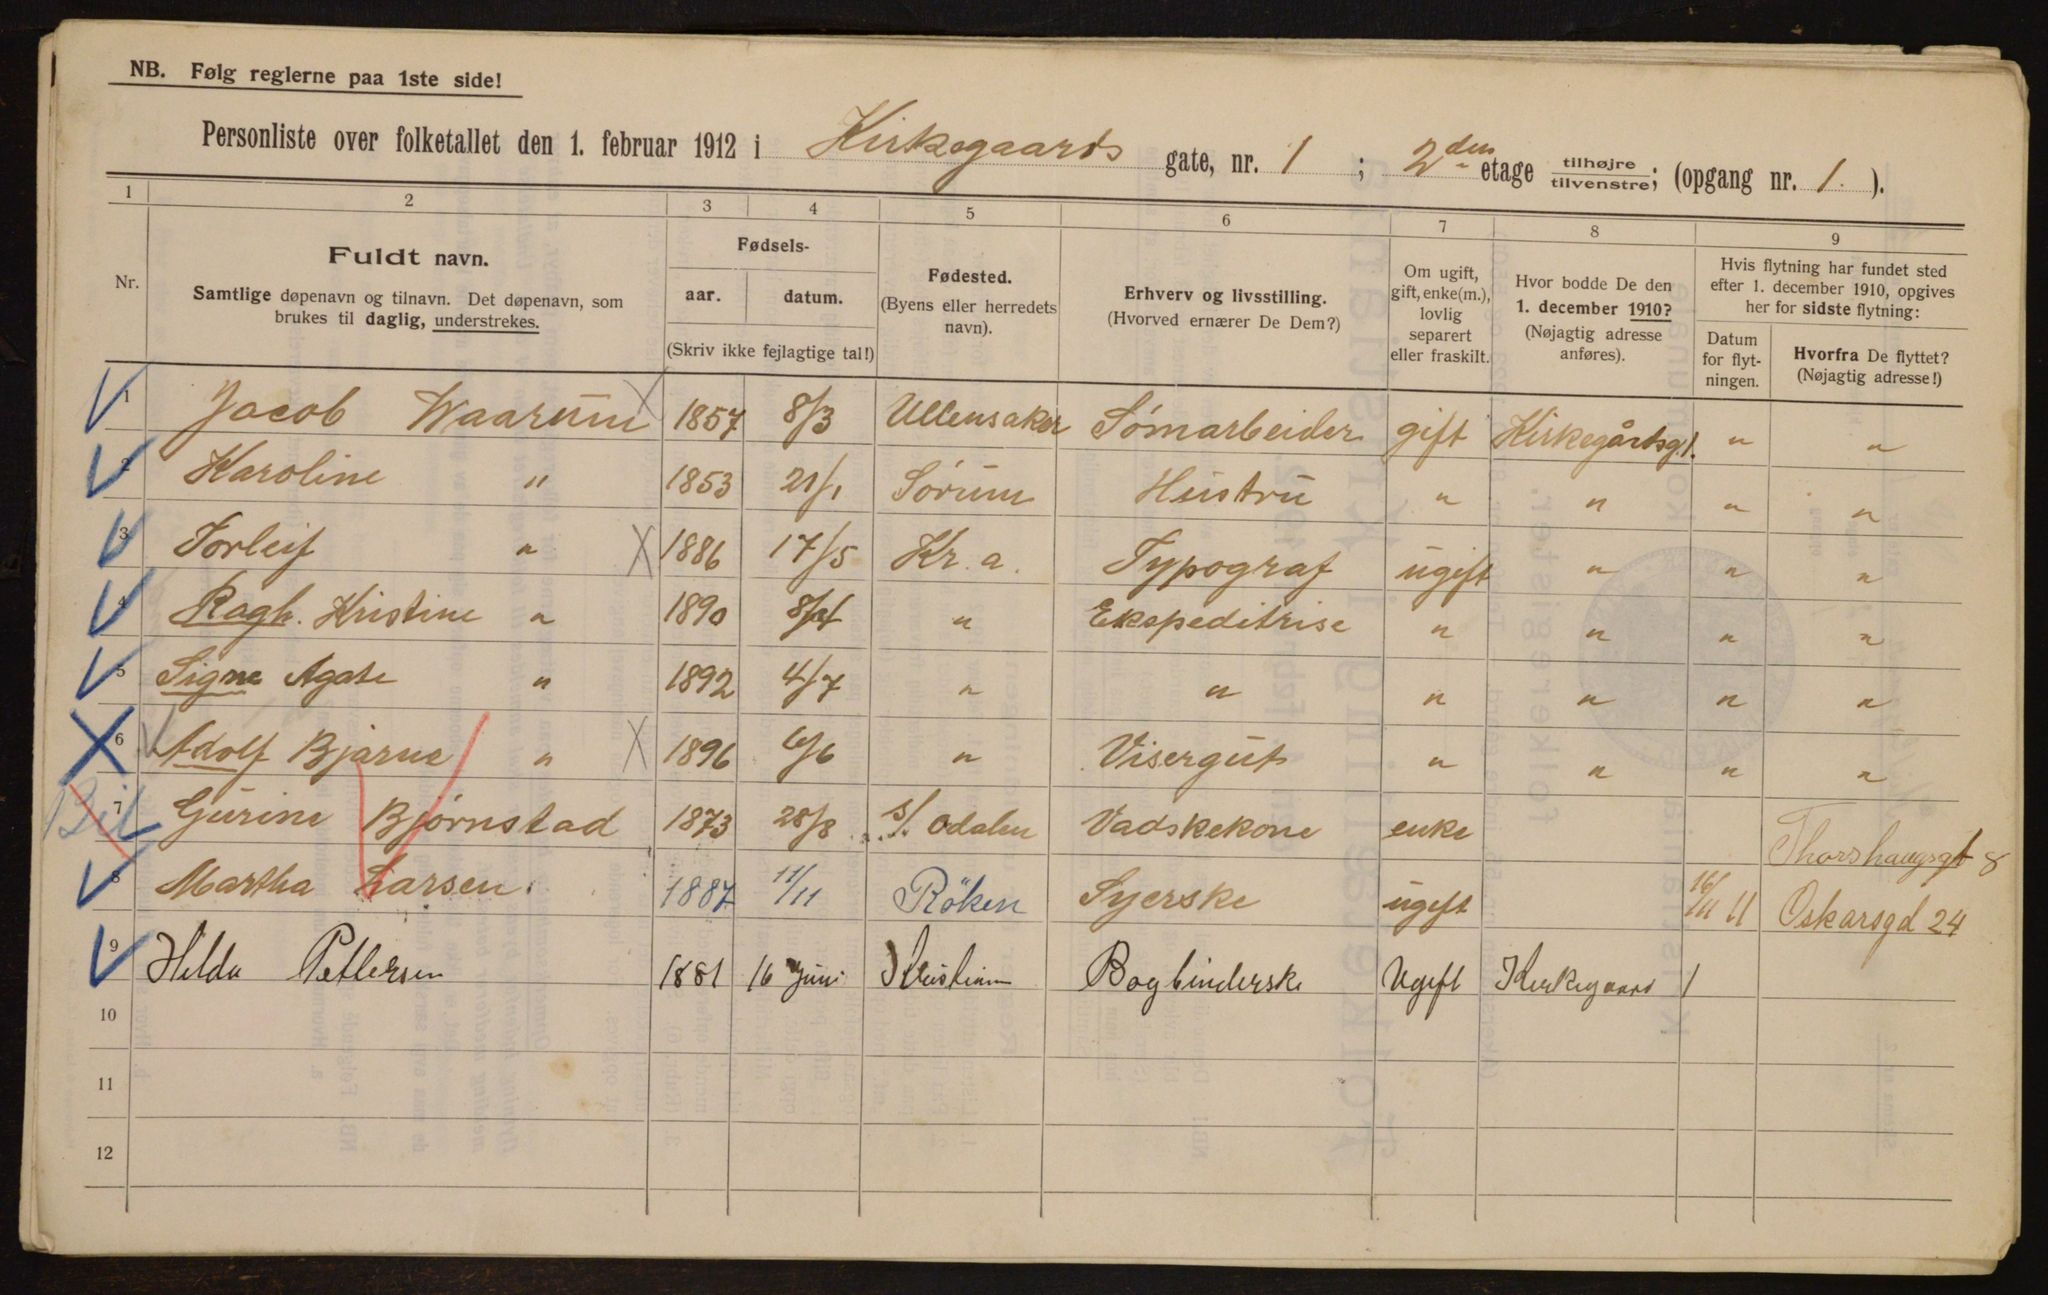 NB. Følg reglerne paa 1ste side!
Personliste over folketallet den 1. februar 1912 i Kirkegaards gate, nr. 1 ; 2den etage tilhøjre tilvenstre; (opgang nr. 1. ).
1 2 3 4 5 6 7 8 9
Nr.
Fuldt navn.
Samtlige døpenavn og tilnavn. Det døpenavn, som
brukes til daglig, understrekes.
Fødsels-
aar. datum.
(Skriv ikke fejlagtige tal!)
Fødested.
(Byens eller herredets
navn).
Erhverv og livsstilling.
(Hvorved ernærer De Dem?)
Om ugift,
gift, enke(m.),
lovlig
separert
eller fraskilt.
Hvor bodde De den
1. december 1910?
(Nøjagtig adresse
anføres).
Hvis flytning har fundet sted
efter 1. december 1910, opgives
her for sidste flytning:
Datum
for flyt-
ningen.
Hvorfra De flyttet?
(Nøjagtig adresse!)
1 Jacob Waarum 1857 8/3 Ullensaker Sømarbeider gift Kirkegårdsg. 1. " "
2 Karoline " 1853 21/1 Sørum Hustru " " " "
3 Torleif " 1886 17/5 Kr. a. Typograf ugift " " "
4 Ragh. Kristine " 1890 " Ekspeditrise " " " "
5 Signe Agate " 1892 4/7 " " " " " "
6 Adolf Bjarne " 1896 6/6 " Visergut " " " "
7 Gurine Bjørnstad 1873 28/8 S/. Odalen Vadskekone enke Thorshaugsgt 8
8 Martha Larsen. 1887 11/11 Röken Syerske ugift 16/11 11 Oskarsgd 24
9 Hilda Pettersen 1881 16 Juni Kristiania Bogbinderske Ugift Kirkegaard 1
10
11
12